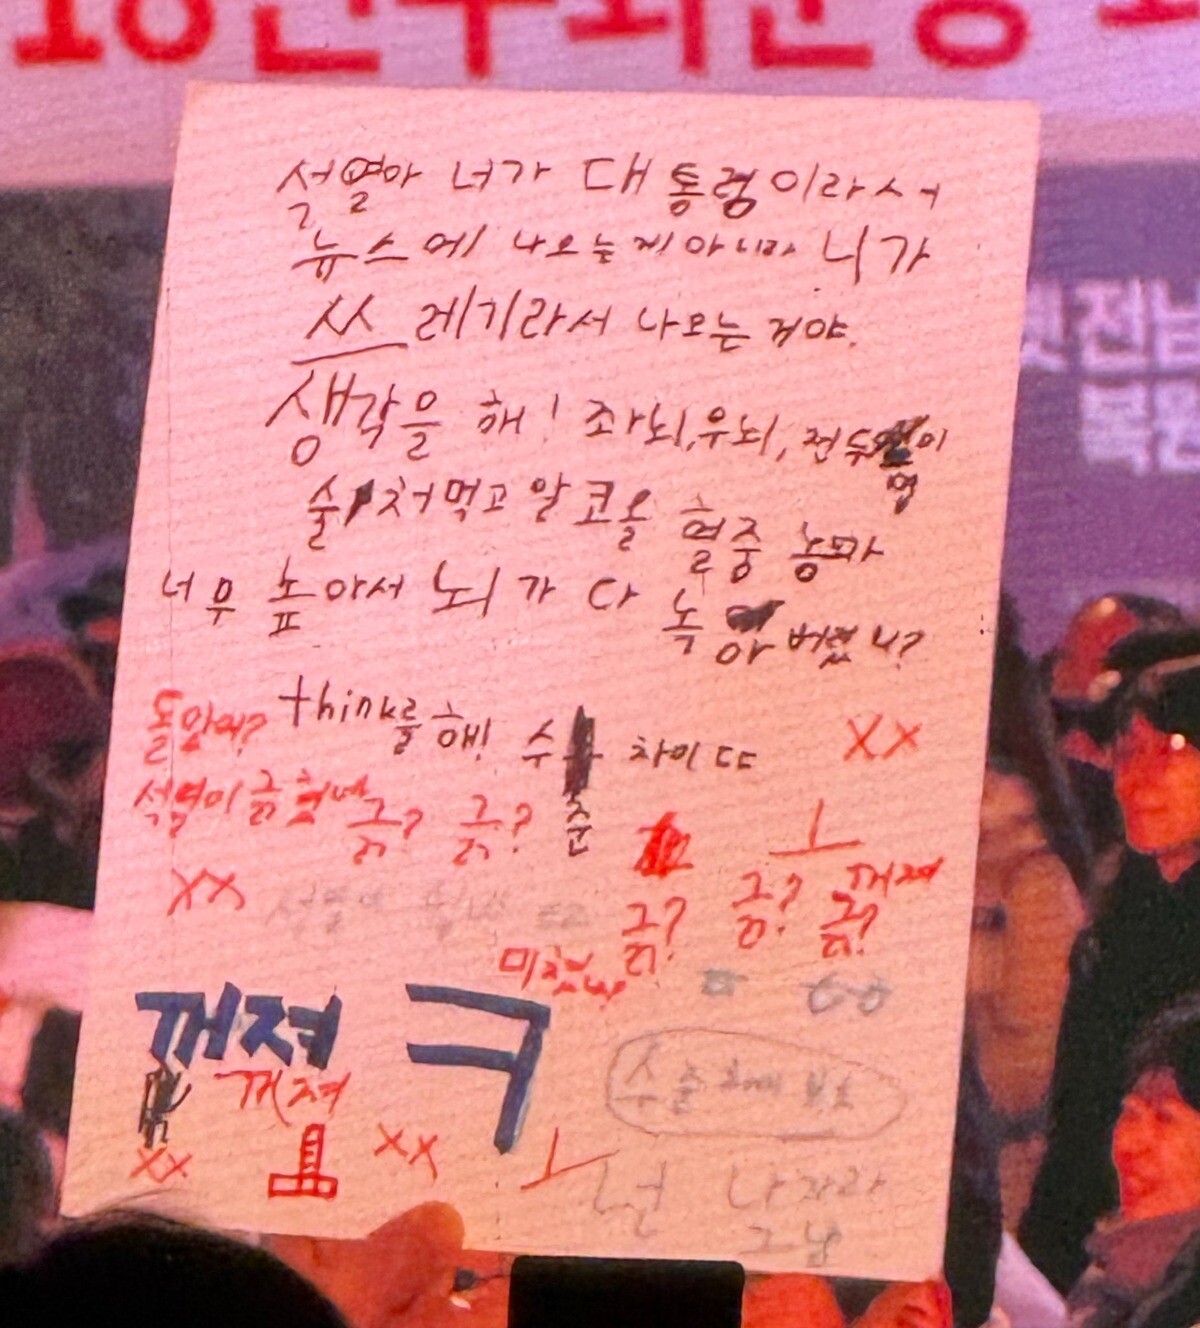 석열아 너가 대통령이라서
뉴스에 나오는게 아니라 니가
쓰레기라서 나오는 거야.
생각을 해! 좌뇌, 우뇌, 전두엽이
술 처먹고 알코올 혈중 농따
너무 높아서 뇌가 다 녹아버렸니?
think를 해! 수준 차이 ㄸㄷ
돌았어?
XX
석열이 긁혔네
긁? 긁? ㅗ
XX
긁? 긁? 긁? 꺼져
미쳤냐
꺼져 ㅋ
꺼져
수준차이 보소
XX
XX
ㅗ
넌 나자라
그냥
전남